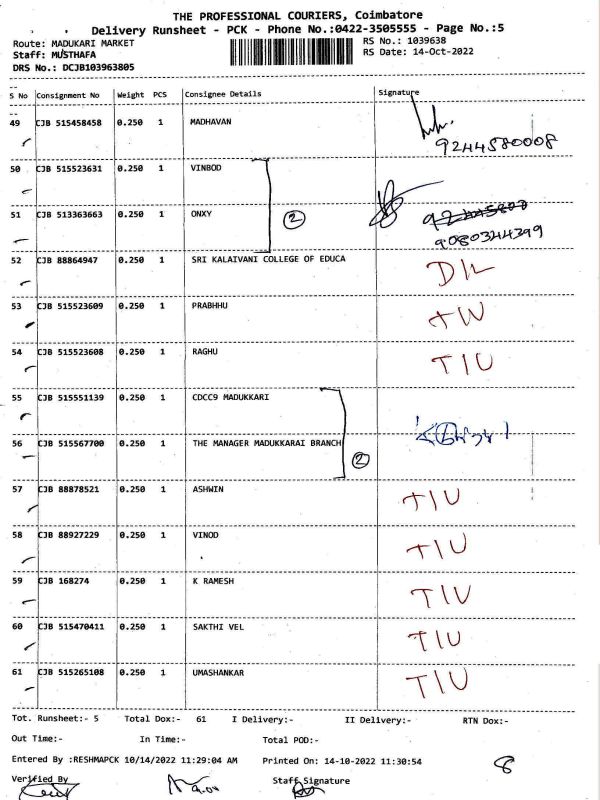 THE PROFESSIONAL COURIERS, Coimbatore
Delivery Runsheet - PCK - Phone No.:0422-3505555 - Page No.:5
Route: MADUKARI MARKET RS No.: 1039638
Staff: MUSTHAFA RS Date: 14-Oct-2022
DRS No.: DCJB103963805
S No Consignment No Weight PCS Consignee Details Signature
49 CJB 515458458 0.250 1 MADHAVAN
9244580008
50 CJB 515523631 0.250 1 VINBOD
51 CJB 513363663 0.250 1 ONXY 2
9080344399
52 CJB 88864947 0.250 1 SRI KALAIVANI COLLEGE OF EDUCA D/L
53 CJB 515523609 0.250 1 PRABHHU TIU
54 CJB 515523608 0.250 1 RAGHU TIU
55 CJB 515551139 0.250 1 CDCC9 MADUKKARI
56 CJB 515567700 0.250 1 THE MANAGER MADUKKARAI BRANCH 2
57 CJB 88878521 0.250 1 ASHWIN TIU
58 CJB 88927229 0.250 1 VINOD TIU
59 CJB 168274 0.250 1 K RAMESH TIU
60 CJB 515470411 0.250 1 SAKTHI VEL TIU
61 CJB 515265108 0.250 1 UMASHANKAR TIU
Tot. Runsheet:- 5 Total Dox:- 61 I Delivery:- II Delivery:- RTN Dox:-
Out Time:- In Time:- Total POD:-
Entered By :RESHMAPCK 10/14/2022 11:29:04 AM Printed On: 14-10-2022 11:30:54 8
Verified By Staff Signature